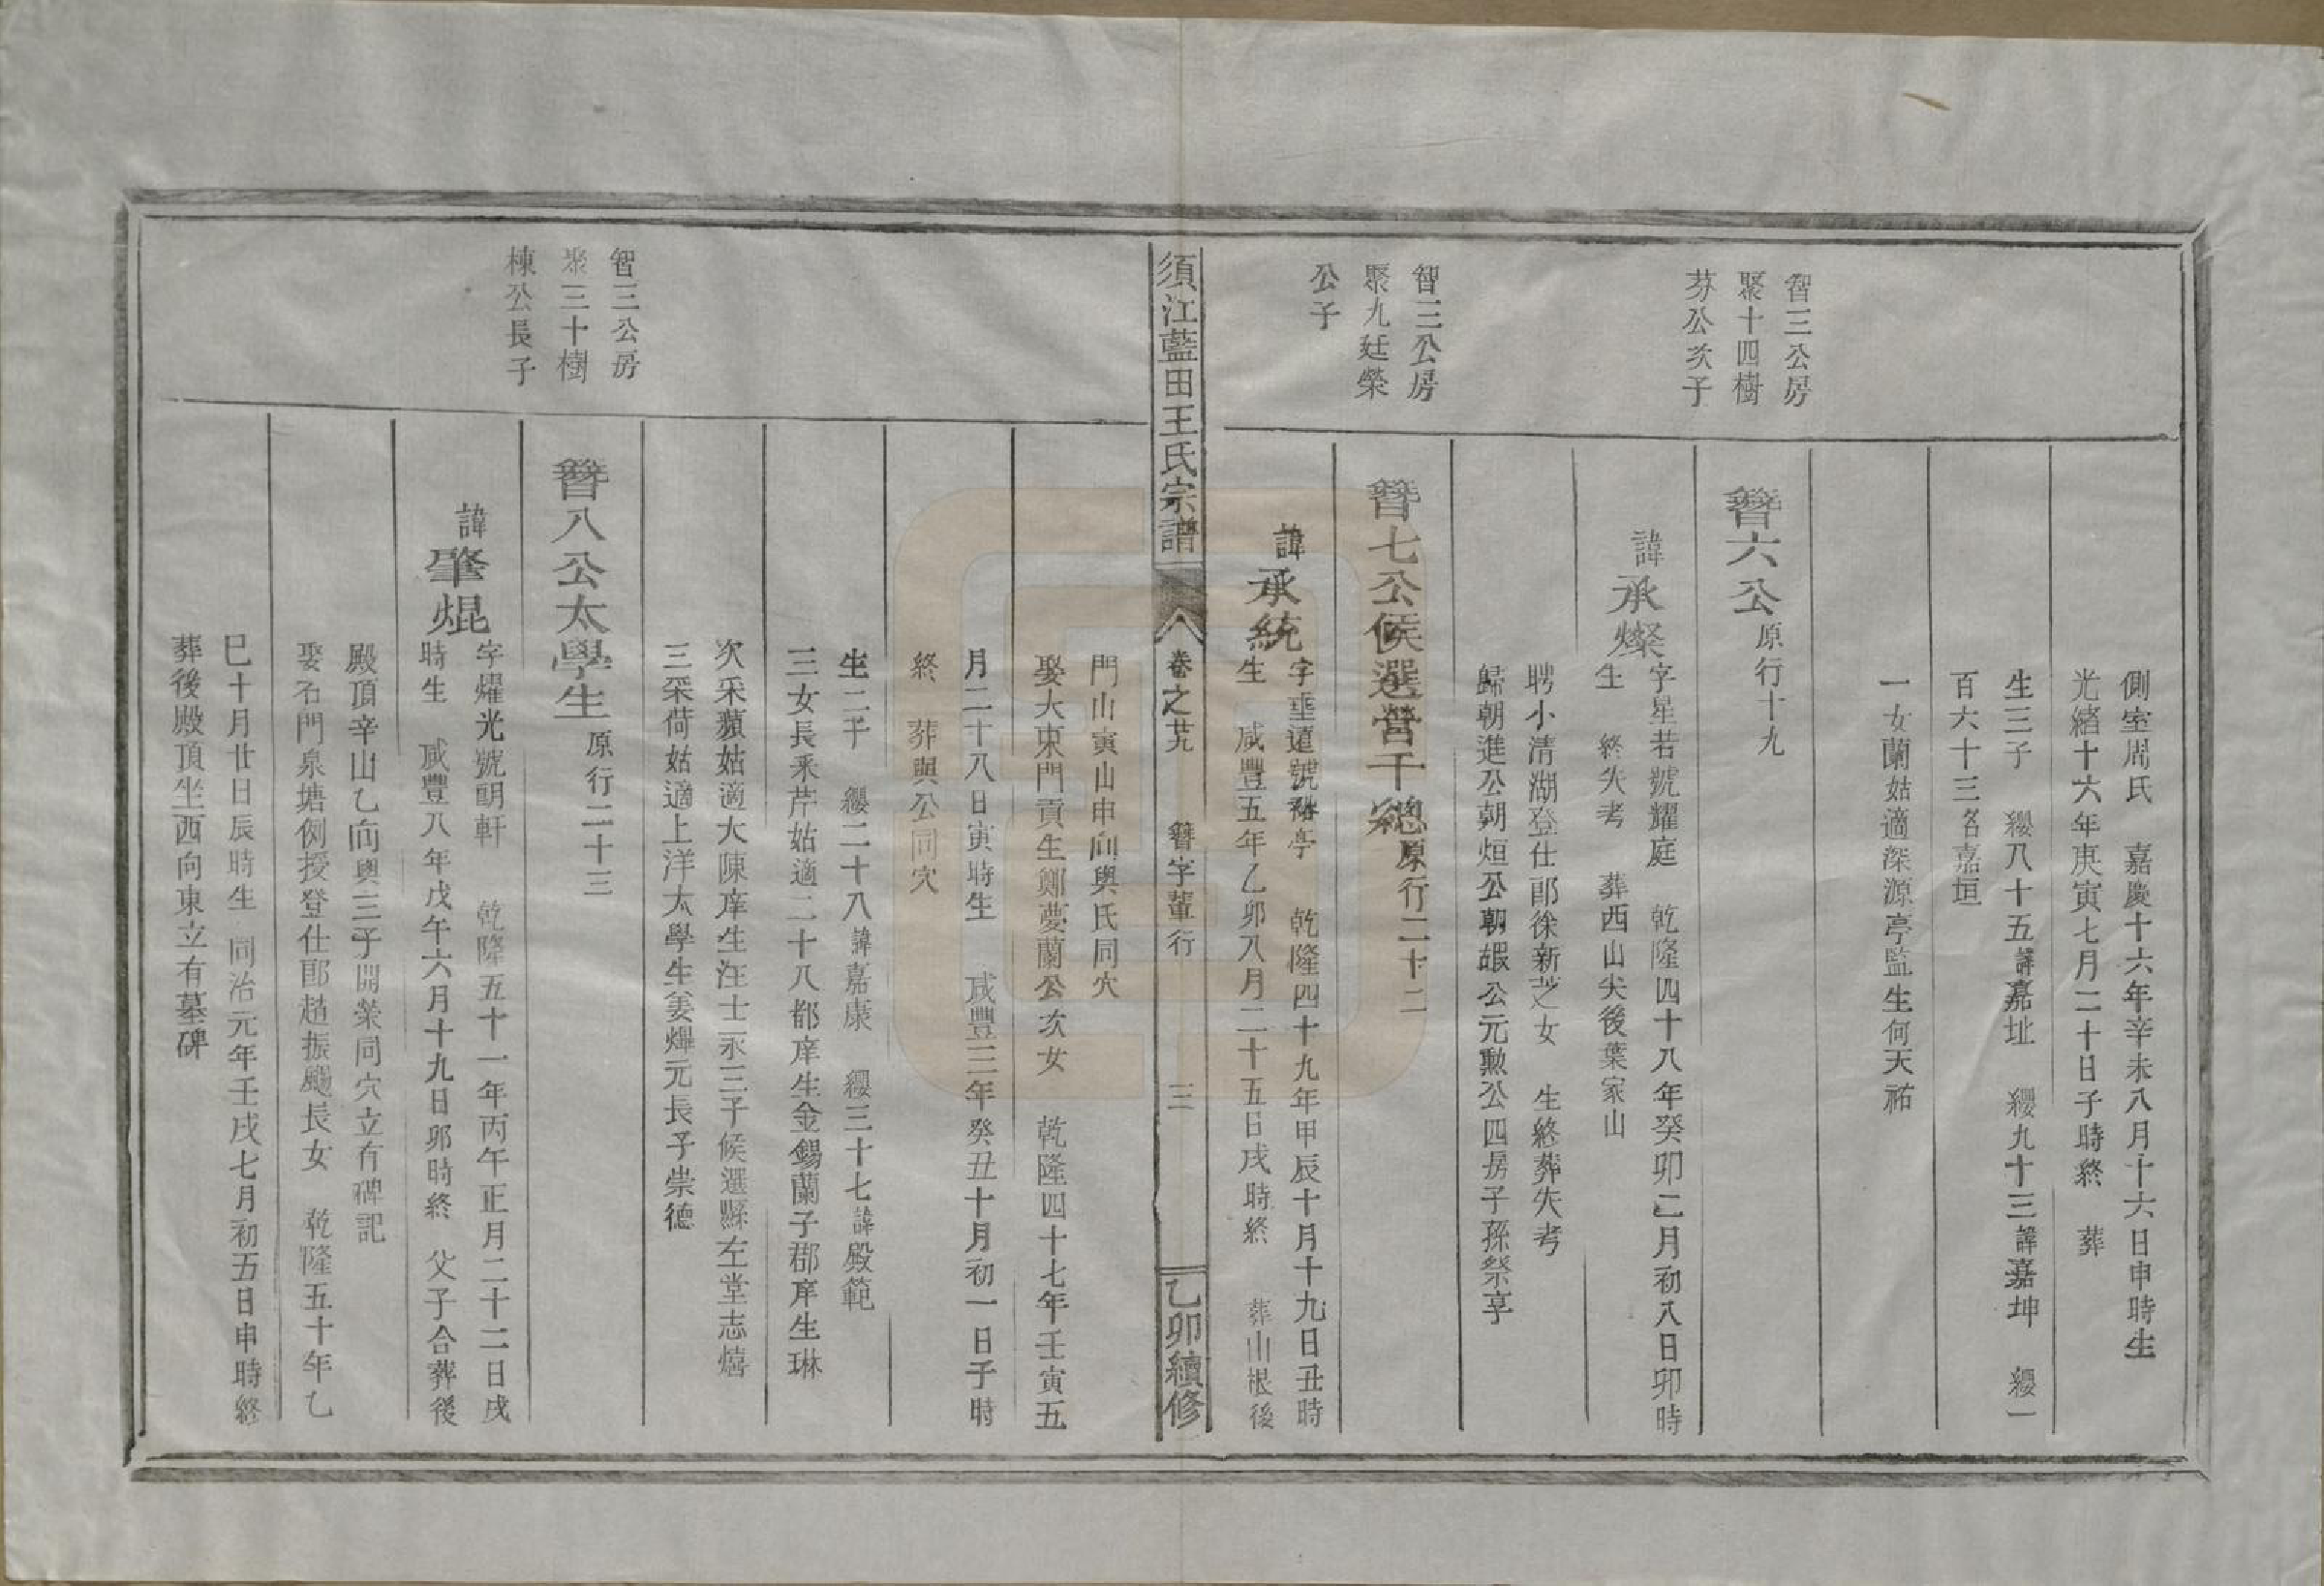 側室周氏　嘉慶十六年辛未八月十六日申時生
光緒十六年庚寅七月二十日子時終　葬
生三子　纓八十五諱嘉址　纓九十三諱嘉坤　纓一
百六十三名嘉垣
一女蘭姑適深源亭監生何天祐
智三公房
聚十四樹
芬公次子
簪六公原行十九
諱承燦
字星若號耀庭　乾隆四十八年癸卯二月初八日卯時
生　終失考　葬西山尖後葉家山
聘小清湖登仕郎徐新芝女　生終葬失考
歸朝進公朝烜公朝嘏公元勲公四房子孫祭享
智三公房
聚九廷榮
公子
簪七公候選營千總原行二十二
諱承統
字垂遠號裕亭　乾隆四十九年甲辰十月十九日丑時
生　咸豐五年乙卯八月二十五日戌時終　葬山根後
須江藍田王氏宗譜　卷之廿九　簪字輩行　三　乙卯續修
門山寅山申向與氏同穴
娶大東門貢生鄭夢蘭公次女　乾隆四十七年壬寅五
月二十八日寅時生　咸豐三年癸丑十月初一日子時
終　葬與公同穴
生二子　纓二十八諱嘉康　纓三十七諱殿範
三女長釆芹姑適二十八都庠生金錫蘭子郡庠生琳
次釆蘋姑適大陳庠生汪士永三子候選縣左堂志熺
三釆荷姑適上洋太學生姜燡元長子崇德
智三公房
聚三十樹
棟公長子
簪八公太學生原行二十三
諱肇焜
字燿光號朗軒　乾隆五十一年丙午正月二十二日戌
時生　咸豐八年戊午六月十九日卯時終　父子合葬後
殿頂辛山乙向與三子開榮同穴立有碑記
娶石門泉塘例授登仕郎趙振颺長女　乾隆五十年乙
巳十月廿日辰時生　同治元年壬戌七月初五日申時終
葬後殿頂坐西向東立有墓碑